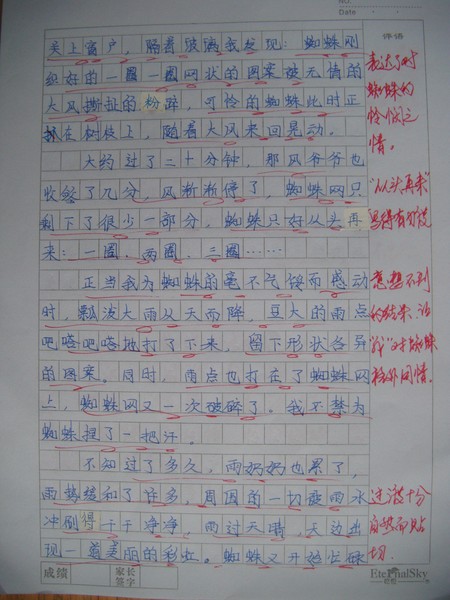 NO.
Date
评语
关上窗户，隔着玻璃我发现：蜘蛛刚
织好的一圈一圈网状的图案被无情的
大风撕扯的粉碎，可怜的蜘蛛此时正
抓在树枝上，随着大风来回晃动。
大约过了二十分钟，那风爷爷也
收敛了几分，风渐渐停了，蜘蛛网只
剩下了很少一部分，蜘蛛只好从头再
来：一圈、两圈、三圈……
正当我为蜘蛛的毫不气馁而感动
时，瓢泼大雨从天而降，豆大的雨点
吧嗒吧嗒地打了下来，留下形状各异
的图案。同时，雨点也打在了蜘蛛网
上，蜘蛛网又一次破碎了。我不禁为
蜘蛛捏了一把汗。
不知过了多久，雨奶奶也累了，
雨势缓和了许多，周围的一切被雨水
冲刷得干干净净，雨过天晴，天边出
现一道美丽的彩虹。蜘蛛又开始忙碌
表达了对
蜘蛛的
怜悯之
情。
“从头再来”
意想不到
的结果，让
“我”对蜘蛛
格外同情。
过渡十分
自然而贴
切。
成绩
家长
签字
EternalSky